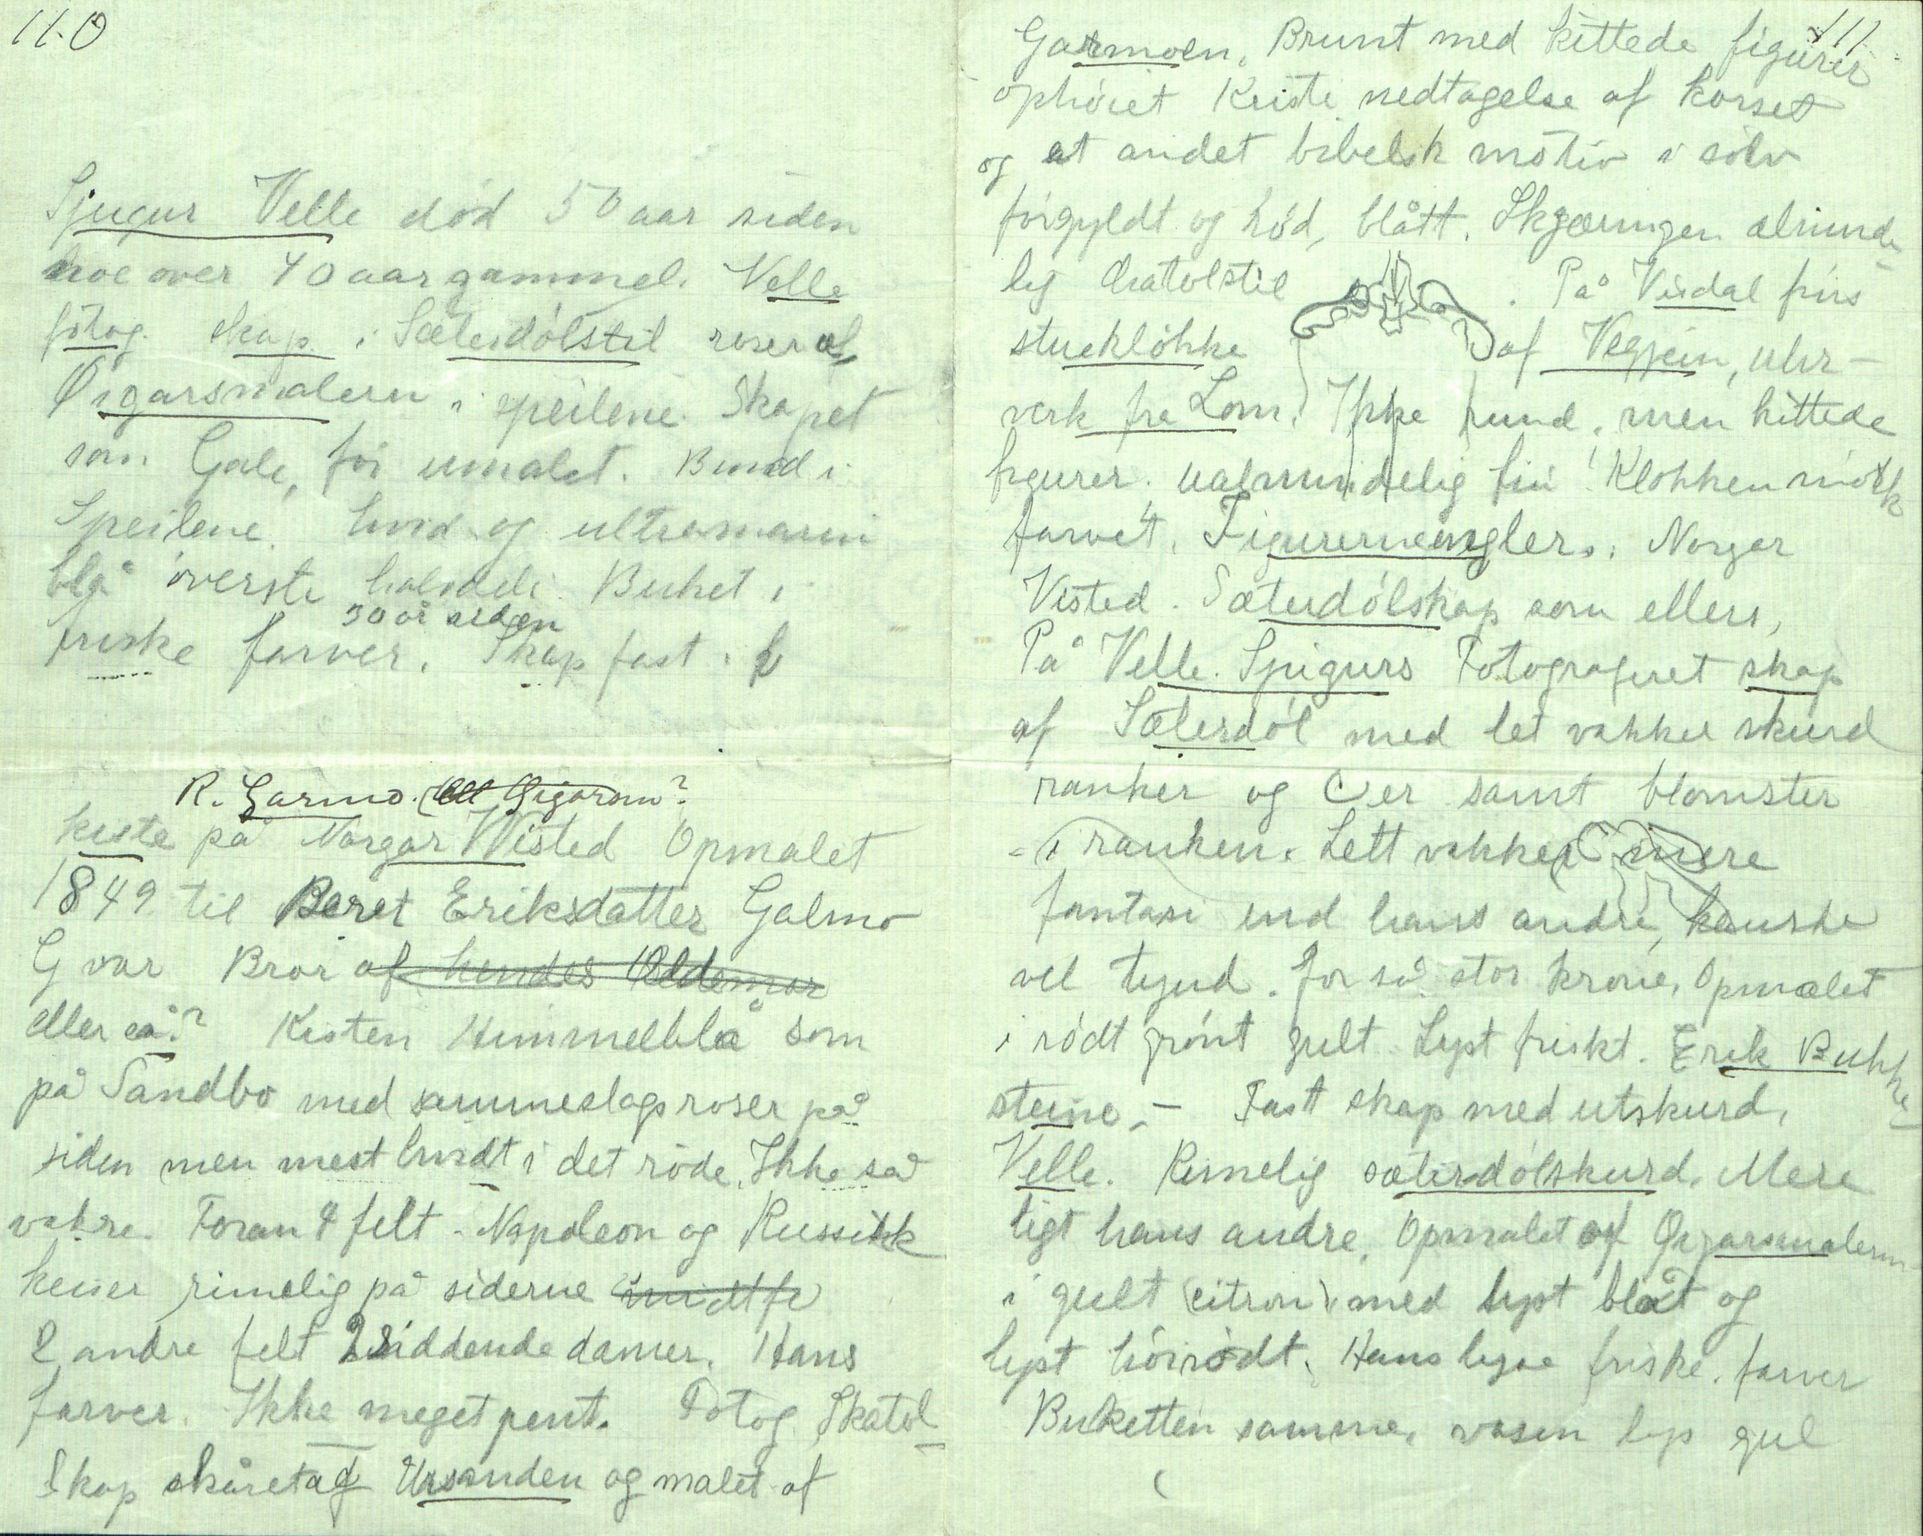 110
Sjugur Velle død 50 aar siden
noe over 40 aar gammel. Velle
fotog. skap i Sæterdølstil roser af
Øigarsmaleren i speilene. Skapet
som Gale, før umalet. Bund i
Speilene. hvid og ultramarin
blå øverste halvdel. Buket i
30 år siden
friske farver. Skap fast.
R. Garmo. (
kiste på Norgar Visted Opmalet
1849 til Beret Eriksdatter Galmo
G var Bror af hendes Oldemor
eller så? Kisten Himmelblå som
på Sandbo med sammeslags roser på
siden men mest hvidt i det røde. Ikke så
vakre. Foran 4 felt - Napoleon og Russisk
keiser rimelig på siderne i midtfe
2 andre felt 2 siddende damer. Hans
farver. Ikke meget pent. Fotog. Skatol-
Skap skåret af Ursanden og malet af
111
Garmoen. Brunt med kittede figurer
ophøiet Kristi nedtagelse af korset
og et andet bibelsk motiv i sølv
forgyldt og rød, blått. Skjæringen almindelig
chatolstil . På Visdal
stueklokke af Vegjein, uhr-
verk fra Lom. Ikke rund, men kittede
figurer. ualmindelig fin! Klokken mørk
farvet. Figurernængler. Norger
Visted. Sæterdølskap som ellers,
På Velle. Sjugurs Fotograferet skap
af Sæterdøl med let vakker skurd
ranker og C er samt blomster
- i ranken. Lett vakker mere
fantasi end hans andre, kanske
vel tynd. for så stor krone. Opmalet
i rødt grønt gult. Lyst friskt. Erik Bukke
steine. - Fast skap med utskurd,
Velle. Rimelig sæterdølskurd. Mere
ligt hans andre. Opmalet af Øigarsmaleren
i gult (citron) med lyst blåt og
lyst høirødt. Hans lyse friske farver
Buketten samme, vasen lys gul